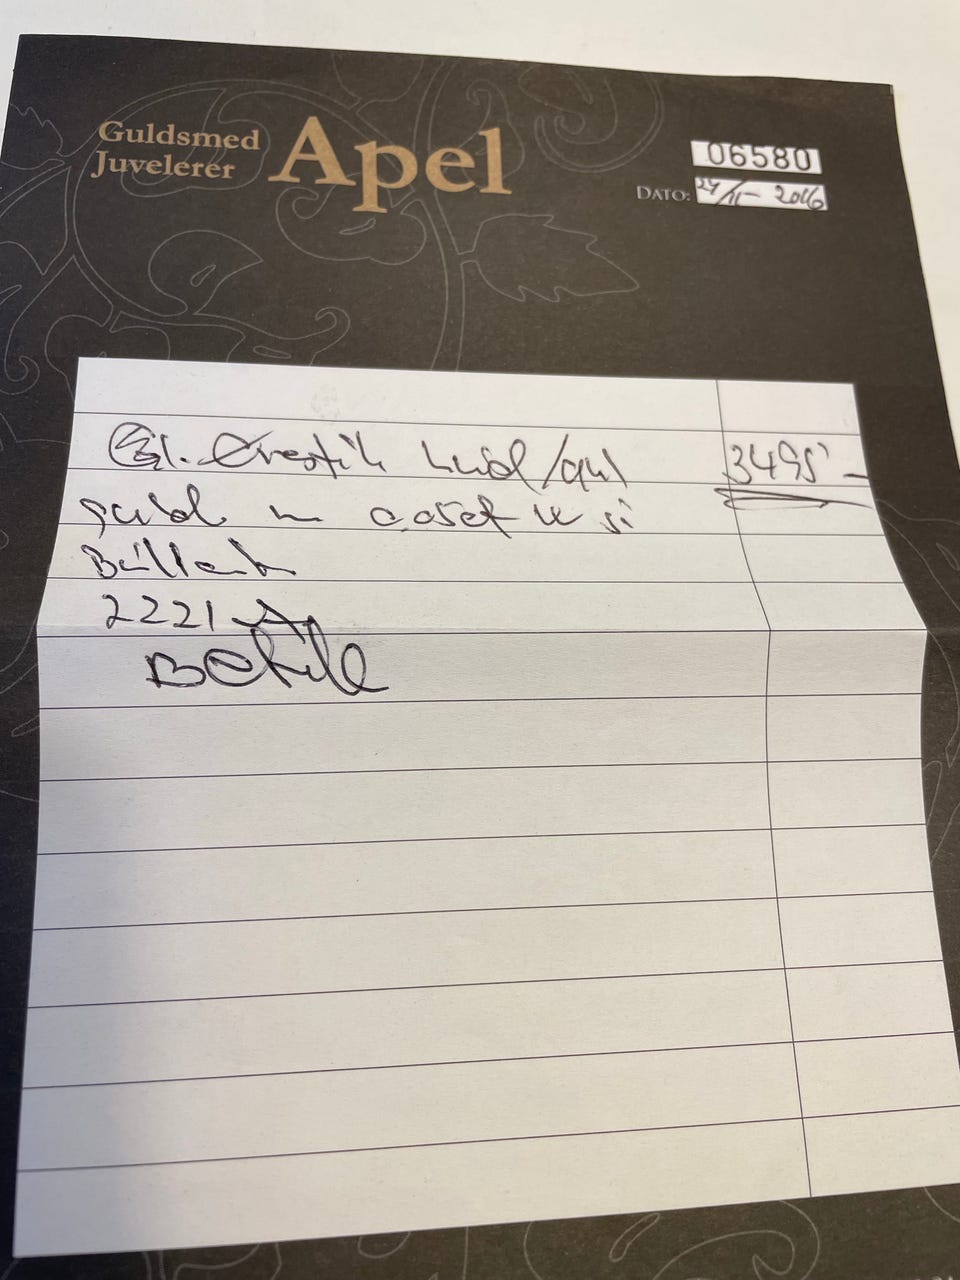 Guldsmed
Juvelerer
Apel
06580
DATO: 24/11-2016
Ørestik hvid/gul 3495-
guld m 0,05ct w si
Brillant
2221 A
Betalt